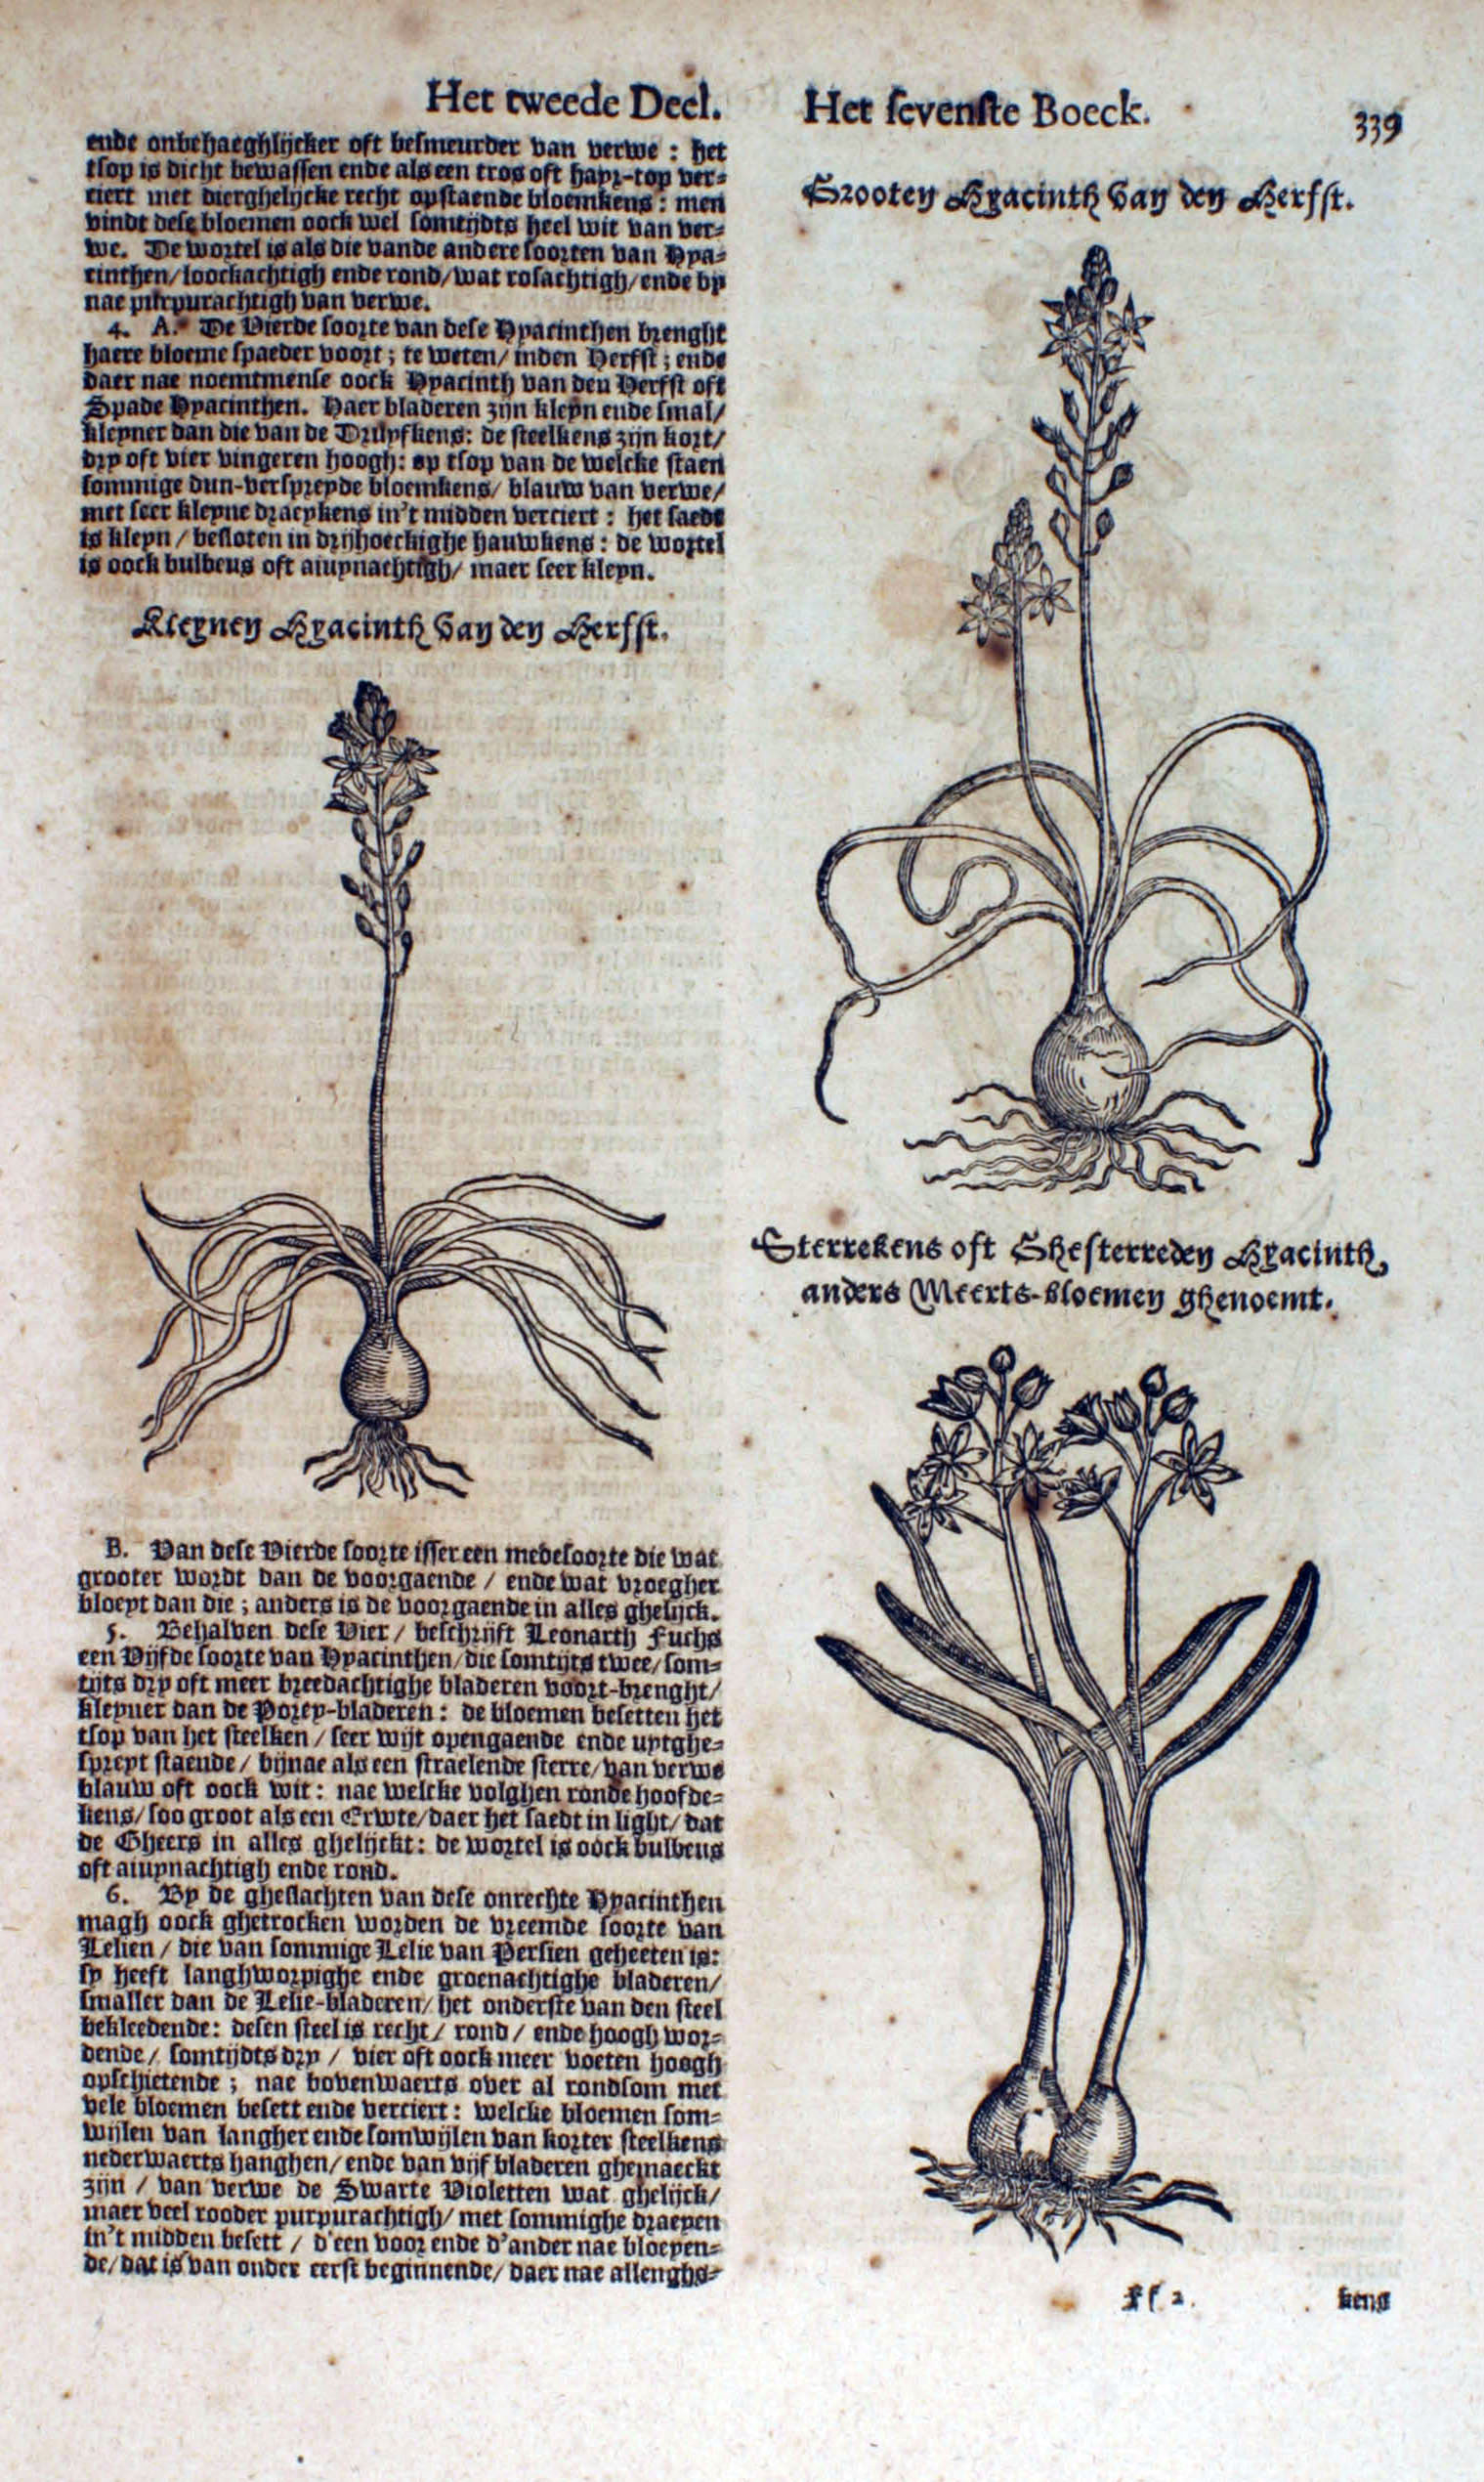 Het tweede Deel. Het sevenste Boeck. 339
ende onbehaeghlijcker oft besmeurder van verwe : het
tsop is dicht bewassen ende als een tros oft hayr-top ver-
ciert met dierghelijcke recht opstaende bloemkens : men
vindt dese bloemen oock wel somtijdts heel wit van ver-
we. De wortel is als die vande andere soorten van Hya-
cinthen/ loockachtigh ende rond/ wat rosachtigh/ ende by
nae purpurachtigh van verwe.
4. A. De Vierde soorte van dese Hyacinthen brenght
haere bloeme spaeder voort ; te weten/ inden Herfst ; ende
daer nae noemtmense oock Hyacinth van den Herfst oft
Spade Hyacinthen. Haer bladeren zijn kleyn ende smal/
kleyner dan die van de Druyfkens: de steelkens zijn kort/
dry oft vier vingeren hoogh: op tsop van de welcke staen
sommige dun-verspreyde bloemkens/ blauw van verwe/
met seer kleyne draeykens in't midden verciert : het saedt
is kleyn / besloten in drijhoeckighe hauwkens : de wortel
is oock bulbeus oft aiuynachtigh/ maer seer kleyn.
Kleynen Hyacinth van den Herfst.
B. Van dese Vierde soorte isser een medesoorte die wat
grooter wordt dan de voorgaende / ende wat vroegher
bloeyt dan die ; anders is de voorgaende in alles ghelijck.
5. Behalven dese Vier / beschrijft Leonarth Fuchs
een Vijfde soorte van Hyacinthen/ die somtijts twee/ som-
tijts dry oft meer breedachtighe bladeren voort-brenght/
kleyner dan de Porey-bladeren : de bloemen besetten het
tsop van het steelken / seer wijt opengaende ende uytghe-
spreyt staende / bijnae als een straelende sterre/ van verwe
blauw oft oock wit : nae welcke volghen ronde hoofde-
kens/ soo groot als een Erwte/ daer het saedt in light/ dat
de Gheers in alles ghelijckt : de wortel is oock bulbeus
oft aiuynachtigh ende rond.
6. By de gheslachten van dese onrechte Hyacinthen
magh oock ghetrocken worden de vreemde soorte van
Lelien / die van sommige Lelie van Persien geheeten is:
sy heeft langhworpighe ende groenachtighe bladeren/
smaller dan de Lelie-bladeren/ het onderste van den steel
bekleedende: desen steel is recht / rond / ende hoogh wor-
dende / somtijdts dry / vier oft oock meer voeten hoogh
opschietende ; nae bovenwaerts over al rondsom met
vele bloemen besett ende verciert : welcke bloemen som-
wijlen van langher ende somwijlen van korter steelkens
nederwaerts hanghen/ ende van vijf bladeren ghemaeckt
zijn / van verwe de Swarte Violetten wat ghelijck/
maer veel rooder purpurachtigh/ met sommighe draeyen
in't midden besett / d'een voor ende d'ander nae bloeyen-
de/ dat is van onder eerst beginnende/ daer nae allenghs-
Grooten Hyacinth van den Herfst.
Sterrekens oft Ghesterreden Hyacinth,
anders Meerts-bloemen ghenoemt.
Ff 2. kens